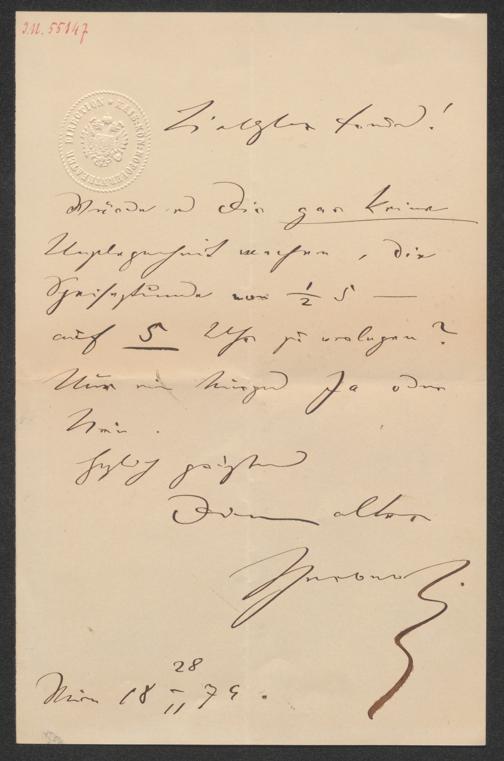 I.N. 55147
KAIS. KÖN. HOFOPERNTHEATER DIRECTION
Freund!
Würde es Dir gar keine
Ungelegenheit machen, die
Speisestunde von 1/2 5 —
auf 5 Uhr zu verlegen?
Nur ein Ja oder
Nein.
Herzlich grüßend
Dein alter
Wien 18 28/11 79.